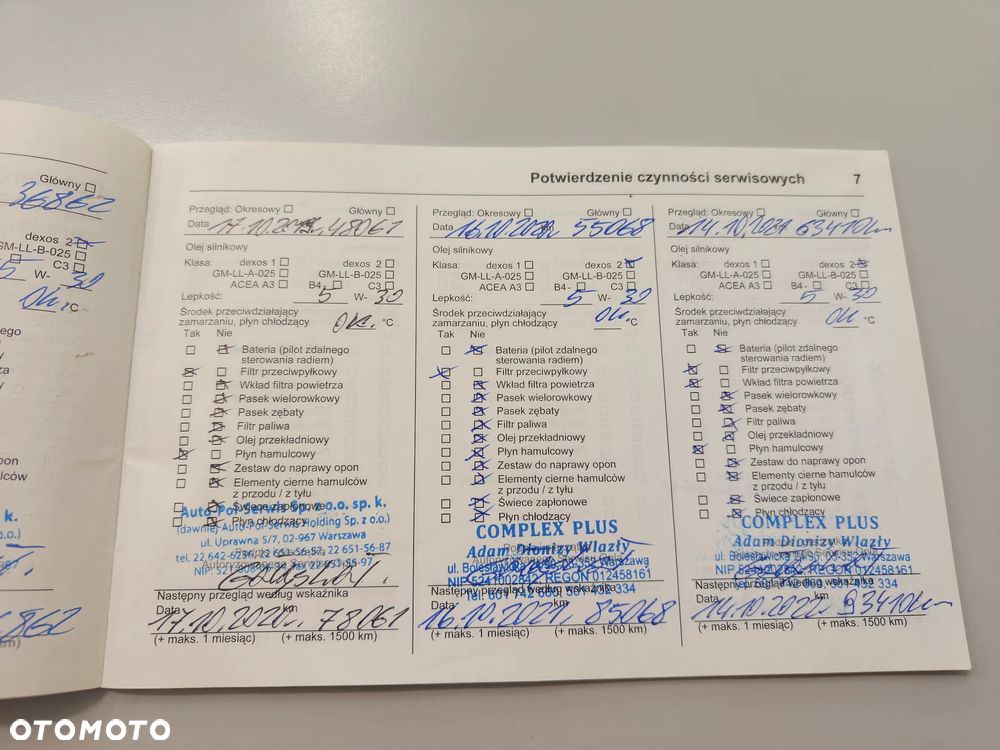 Główny
36862
dexos 2
GM-LL-B-025
C3
5 W- 30
Ok. °C
Potwierdzenie czynności serwisowych 7
Przegląd: Okresowy Główny
Data 17.10.2019r. 48061
Olej silnikowy
Klasa: dexos 1 dexos 2
GM-LL-A-025 GM-LL-B-025
ACEA A3 B4- C3
Lepkość: 5 W- 30
Środek przeciwdziałający
zamarzaniu, płyn chłodzący Ok. °C
Tak Nie
Bateria (pilot zdalnego
sterowania radiem)
Filtr przeciwpyłkowy
Wkład filtra powietrza
Pasek wielorowkowy
Pasek zębaty
Filtr paliwa
Olej przekładniowy
Płyn hamulcowy
Zestaw do naprawy opon
Elementy cierne hamulców
z przodu / z tyłu
Świece zapłonowe
Płyn chłodzący
Auto Pol-Serwis Sp. z o.o. sp. k.
(dawniej Auto-Pol-Serwis Holding Sp. z o.o.)
ul. Uprawna 5/7, 02-967 Warszawa
Następny przegląd według wskaźnika
Data km
17.10.2020r. 78061
(+ maks. 1 miesiąc) (+ maks. 1500 km)
Przegląd: Okresowy Główny
Data 16.10.2020r. 55068
Olej silnikowy
Klasa: dexos 1 dexos 2
GM-LL-A-025 GM-LL-B-025
ACEA A3 B4- C3
Lepkość: 5 W- 30
Środek przeciwdziałający
zamarzaniu, płyn chłodzący Ok. °C
Tak Nie
Bateria (pilot zdalnego
sterowania radiem)
Filtr przeciwpyłkowy
Wkład filtra powietrza
Pasek wielorowkowy
Pasek zębaty
Filtr paliwa
Olej przekładniowy
Płyn hamulcowy
Zestaw do naprawy opon
Elementy cierne hamulców
z przodu / z tyłu
Świece zapłonowe
Płyn chłodzący
COMPLEX PLUS
Adam Dionizy Wlazły
NIP 5241002842, REGON 012458161
Następny przegląd według wskaźnika
Data: km
16.10.2021r. 85068
(+ maks. 1 miesiąc) (+ maks. 1500 km)
Przegląd: Okresowy Główny
Data 14.10.2021 63410km
Olej silnikowy
Klasa: dexos 1 dexos 2
GM-LL-A-025 GM-LL-B-025
ACEA A3 B4- C3
Lepkość: 5 W- 30
Środek przeciwdziałający
zamarzaniu, płyn chłodzący Ok °C
Tak Nie
Bateria (pilot zdalnego
sterowania radiem)
Filtr przeciwpyłkowy
Wkład filtra powietrza
Pasek wielorowkowy
Pasek zębaty
Filtr paliwa
Olej przekładniowy
Płyn hamulcowy
Zestaw do naprawy opon
Elementy cierne hamulców
z przodu / z tyłu
Świece zapłonowe
Płyn chłodzący
COMPLEX PLUS
Adam Dionizy Wlazły
NIP 5241002842, REGON 012458161
Następny przegląd według wskaźnika
Data: km
14.10.2022r. 93410km
(+ maks. 1 miesiąc) (+ maks. 1500 km)
OTOMOTO